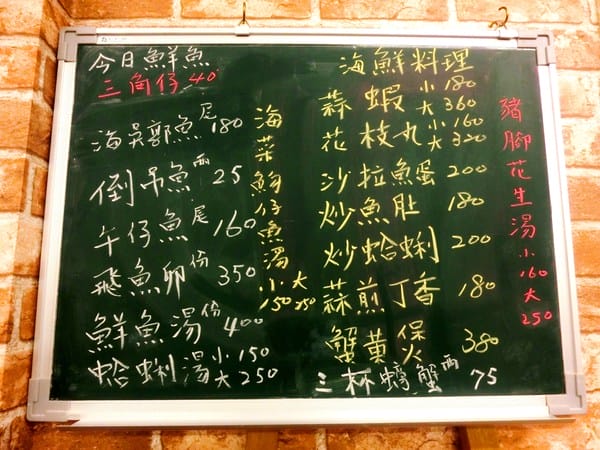 今日鮮魚
三角仔40
海吳郭魚尾180
倒吊魚兩25
午仔魚尾160
飛魚卵份350
鮮魚湯份400
蛤蜊湯小150
大250
海菜魩仔魚湯小150大250
海鮮料理
蒜蝦小180
大360
花枝丸小160
大320
沙拉魚蛋200
炒魚肚180
炒蛤蜊200
蒜煎丁香180
蟹黃煲380
三杯螃蟹兩75
豬腳花生湯小160大250